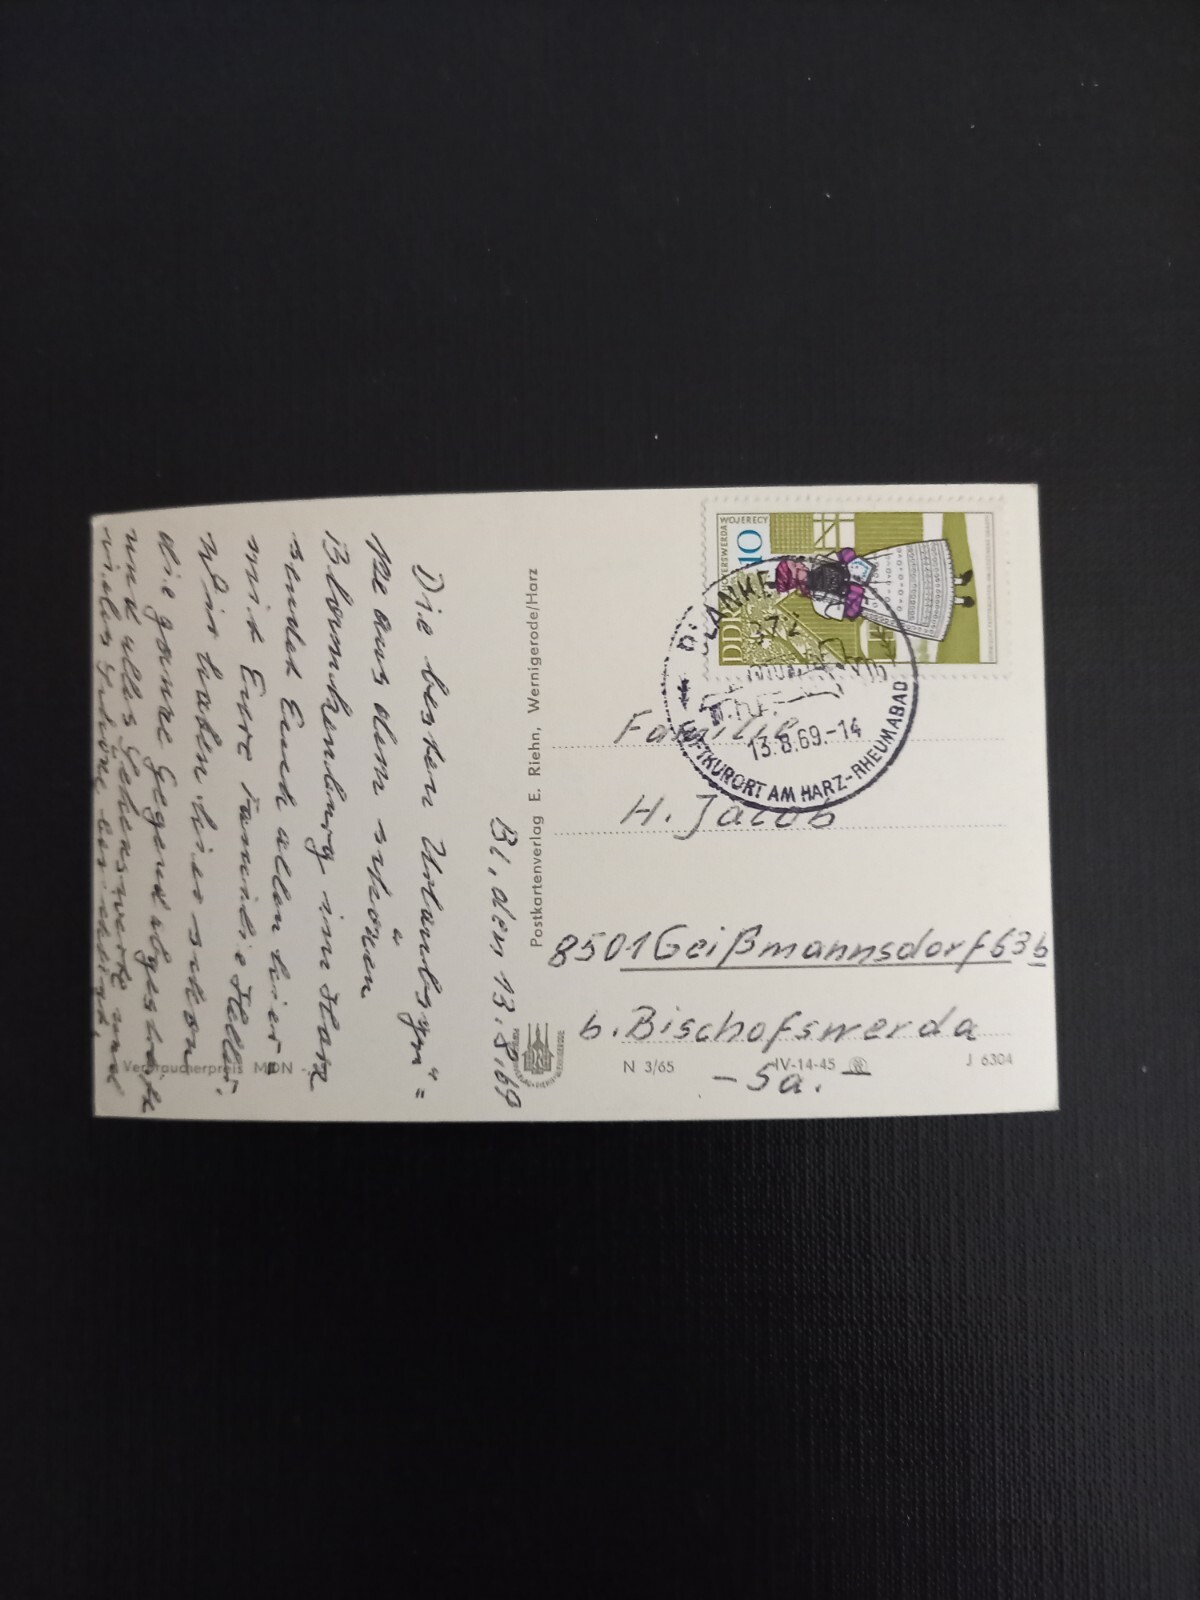 Bl, den 13.8.69
Die besten Urlaubsgrü=
ße aus dem schönen
Blankenburg im Harz
sendet Euch allen hier=
mit Eure Familie
Wir haben hier schon
die ganze Gegend
und alles Sehenswerte und
vieles Schöne
Verbraucherpreis MDN
Postkartenverlag E. Riehn, Wernigerode/Harz
HOYERSWERDA WOJERECY
10
DDR
BLANKE
372
LUFTKURORT AM HARZ-RHEUMABAD
13.8.69.-14
Familie
H. Jacob
8501 Geißmannsdorf 63b
b. Bischofswerda
-Sa.-
N 3/65
IV-14-45
J 6304